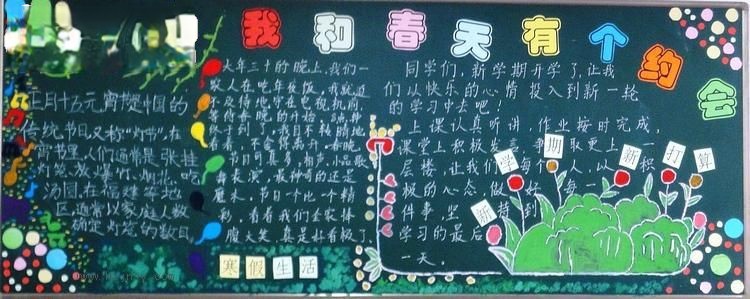 我和春天有个约会
正月十五元宵节是中国的
传统节日又称"灯节",在
宵节里,人们通常是张挂
灯笼、放爆竹、烟花、吃
汤圆,在福建等地
区,通常以家庭人数
确定灯笼的数目
大年三十的晚上,我们一
家人在吃年夜饭,我就迫
不及待地守在电视机前,
等待春晚的开始,8点钟
终于到了,我目不转睛地
看着,不舍得离开,春晚
节目可真多,相声、小品歌
舞表演,最棒的还是
魔术,节目个比一个精
彩,看着我们全家捧
腹大笑,真是好看极了
寒假生活
同学们,新学期开学了,让我
们以快乐的心情投入到新一轮
的学习中去吧!
上课认真听讲,作业按时完成,
课堂上积极发言,争取更上一
层楼,让我们每个人,以积
极的心态,做好每一
件事,坚持到
学习的最后
一天。
新学期新打算